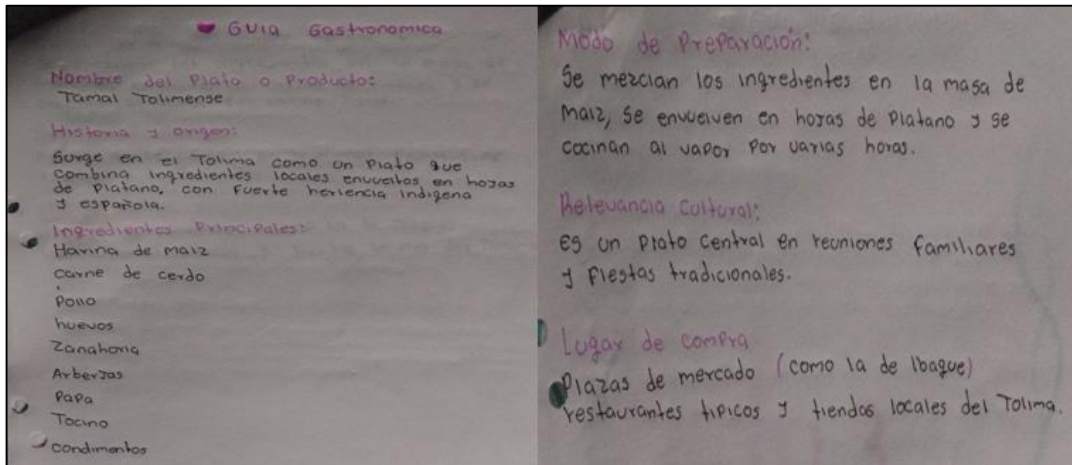 Guia Gastronomica
Nombre del Plato o Producto:
Tamal Tolimense
Historia y origen:
Surge en el Tolima como un Plato que
combina ingredientes locales envueltos en hojas
de Platano, con Fuerte herlencia indigena
y española.
Ingredientes Principales:
Harina de maiz
carne de cerdo
Pollo
huevos
Zanahoria
Arberjas
Papa
Tocino
condimentos
Modo de Preparación:
Se mezclan los ingredientes en la masa de
maiz, Se envuelven en hojas de Platano y se
cocinan al vapor Por varias horas.
Relevancia Cultural:
es un Plato Central en reuniones Familiares
y Fiestas tradicionales.
Lugar de compra
Plazas de mercado (como la de Ibague)
restaurantes tipicos y tiendas locales del Tolima.